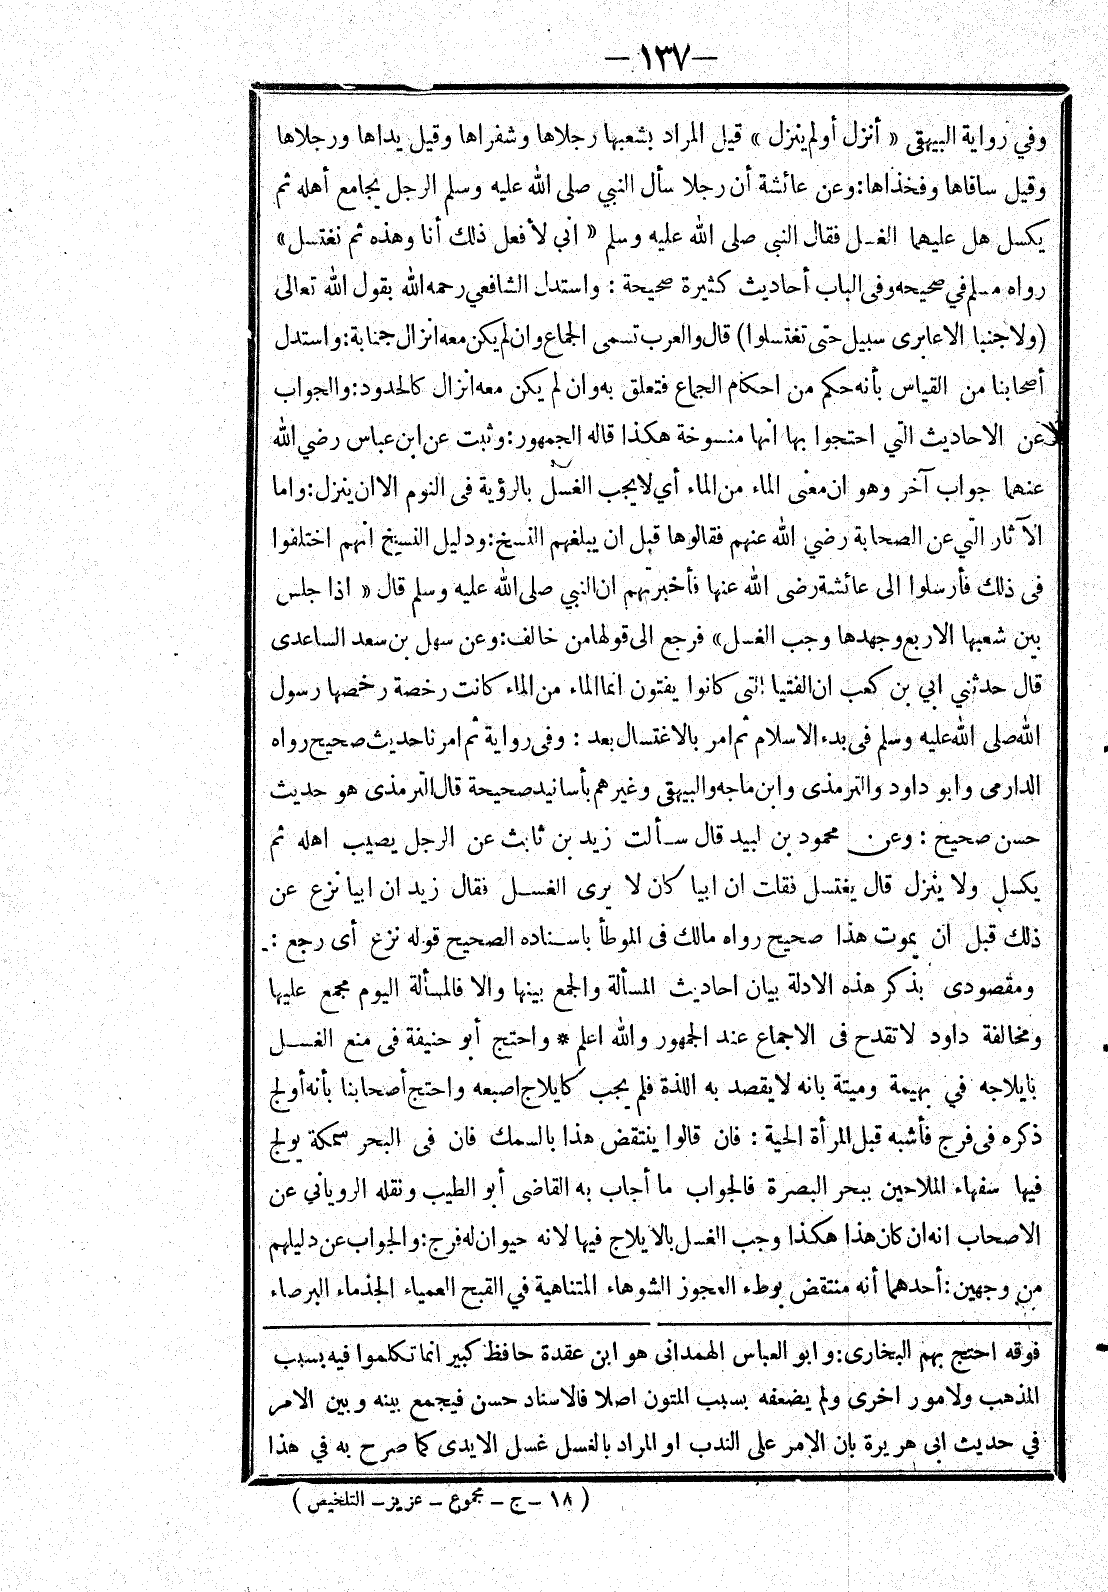 — ١٣٧ —
وفي رواية البيهقى « أنزل أولم ينزل » قيل المراد بشعبها رجلاها وشفراها وقيل يداها ورجلاها
وقيل ساقاها وفخذاها:وعن عائشة أن رجلا سأل النبي صلى الله عليه وسلم الرجل يجامع أهله ثم
يكسل هل عليهما الغسل فقال النبى صلى الله عليه وسلم « انى لأفعل ذلك أنا وهذه ثم نغتسل »
رواه مسلم في صحيحه وفى الباب أحاديث كثيرة صحيحة : واستدل الشافعي رحمه الله بقول الله تعالى
(ولا جنبا الا عابرى سبيل حتى تغتسلوا) قال والعرب تسمى الجماع وان لم يكن معه انزال جنابة:واستدل
أصحابنا من القياس بأنه حكم من احكام الجماع فتعلق به وان لم يكن معه انزال كالحدود:والجواب
عن الاحاديث التي احتجوا بها انها منسوخة هكذا قاله الجمهور:وثبت عن ابن عباس رضي الله
عنهما جواب آخر وهو ان معنى الماء من الماء أي لا يجب الغسل بالرؤية فى النوم الا ان ينزل:واما
الآثار التي عن الصحابة رضي الله عنهم فقالوها قبل ان يبلغهم النسخ:ودليل النسخ انهم اختلفوا
فى ذلك فأرسلوا الى عائشة رضى الله عنها فأخبرتهم ان النبي صلى الله عليه وسلم قال « اذا جلس
بين شعبها الاربع وجهدها وجب الغسل» فرجع الى قولها من خالف:وعن سهل بن سعد الساعدى
قال حدثني ابي بن كعب ان الفتيا التى كانوا يفتون انما الماء من الماء كانت رخصة رخصها رسول
الله صلى الله عليه وسلم فى بدء الاسلام ثم امر بالاغتسال بعد : وفى رواية ثم امرنا حديث صحيح رواه
الدارمى وابو داود والترمذى وابن ماجه والبيهقى وغيرهم بأسانيد صحيحة قال الترمذى هو حديث
حسن صحيح : وعن محمود بن لبيد قال سألت زيد بن ثابت عن الرجل يصيب اهله ثم
يكسل ولا ينزل قال يغتسل فقلت ان ابيا كان لا يرى الغسل فقال زيد ان ابيا نزع عن
ذلك قبل ان يموت هذا صحيح رواه مالك فى الموطأ باسناده الصحيح قوله نزع أى رجع :
ومقصودى بذكر هذه الادلة بيان احاديث المسألة والجمع بينها والا فالمسألة اليوم مجمع عليها
ومخالفة داود لا تقدح فى الاجماع عند الجمهور والله اعلم * واحتج أبو حنيفة فى منع الغسل
بايلاجه في بهيمة وميتة بانه لا يقصد به اللذة فلم يجب كايلاج اصبعه واحتج أصحابنا بأنه أولج
ذكره فى فرج فأشبه قبل المرأة الحية : فان قالوا ينتقض هذا بالسمك فان فى البحر سمكة يولج
فيها سفهاء الملاحين ببحر البصرة فالجواب ما أجاب به القاضى أبو الطيب ونقله الروياني عن
الاصحاب انه ان كان هذا هكذا وجب الغسل بالايلاج فيها لانه حيوان له فرج:والجواب عن دليلهم
من وجهين:أحدهما أنه منتقض بوطء العجوز الشوهاء المتناهية في القبح العمياء الجذماء البرصاء
فوقه احتج بهم البخارى:وابو العباس الهمدانى هو ابن عقدة حافظ كبير انما تكلموا فيه بسبب
المذهب ولامور اخرى ولم يضعفه بسبب المتون اصلا فالاسناد حسن فيجمع بينه وبين الامر
في حديث ابى هريرة بان الامر على الندب او المراد بالغسل غسل الايدى كما صرح به في هذا
( ١٨ – ج – مجموع – عزيز – التلخيص )